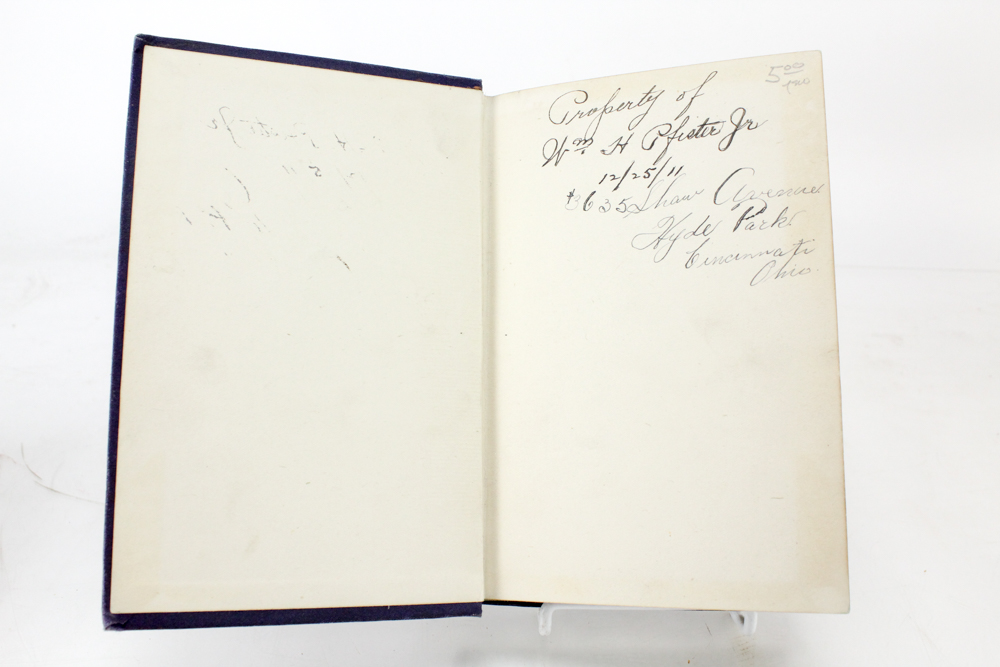 5.00
Property of
Wm. H Pfister Jr
12/25/11
3635 Shaw Avenue
Hyde Park
Cincinnati
Ohio.